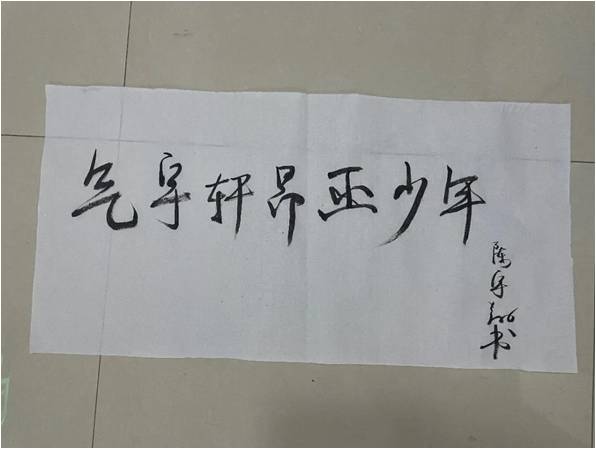 气宇轩昂正少年
陈宇书